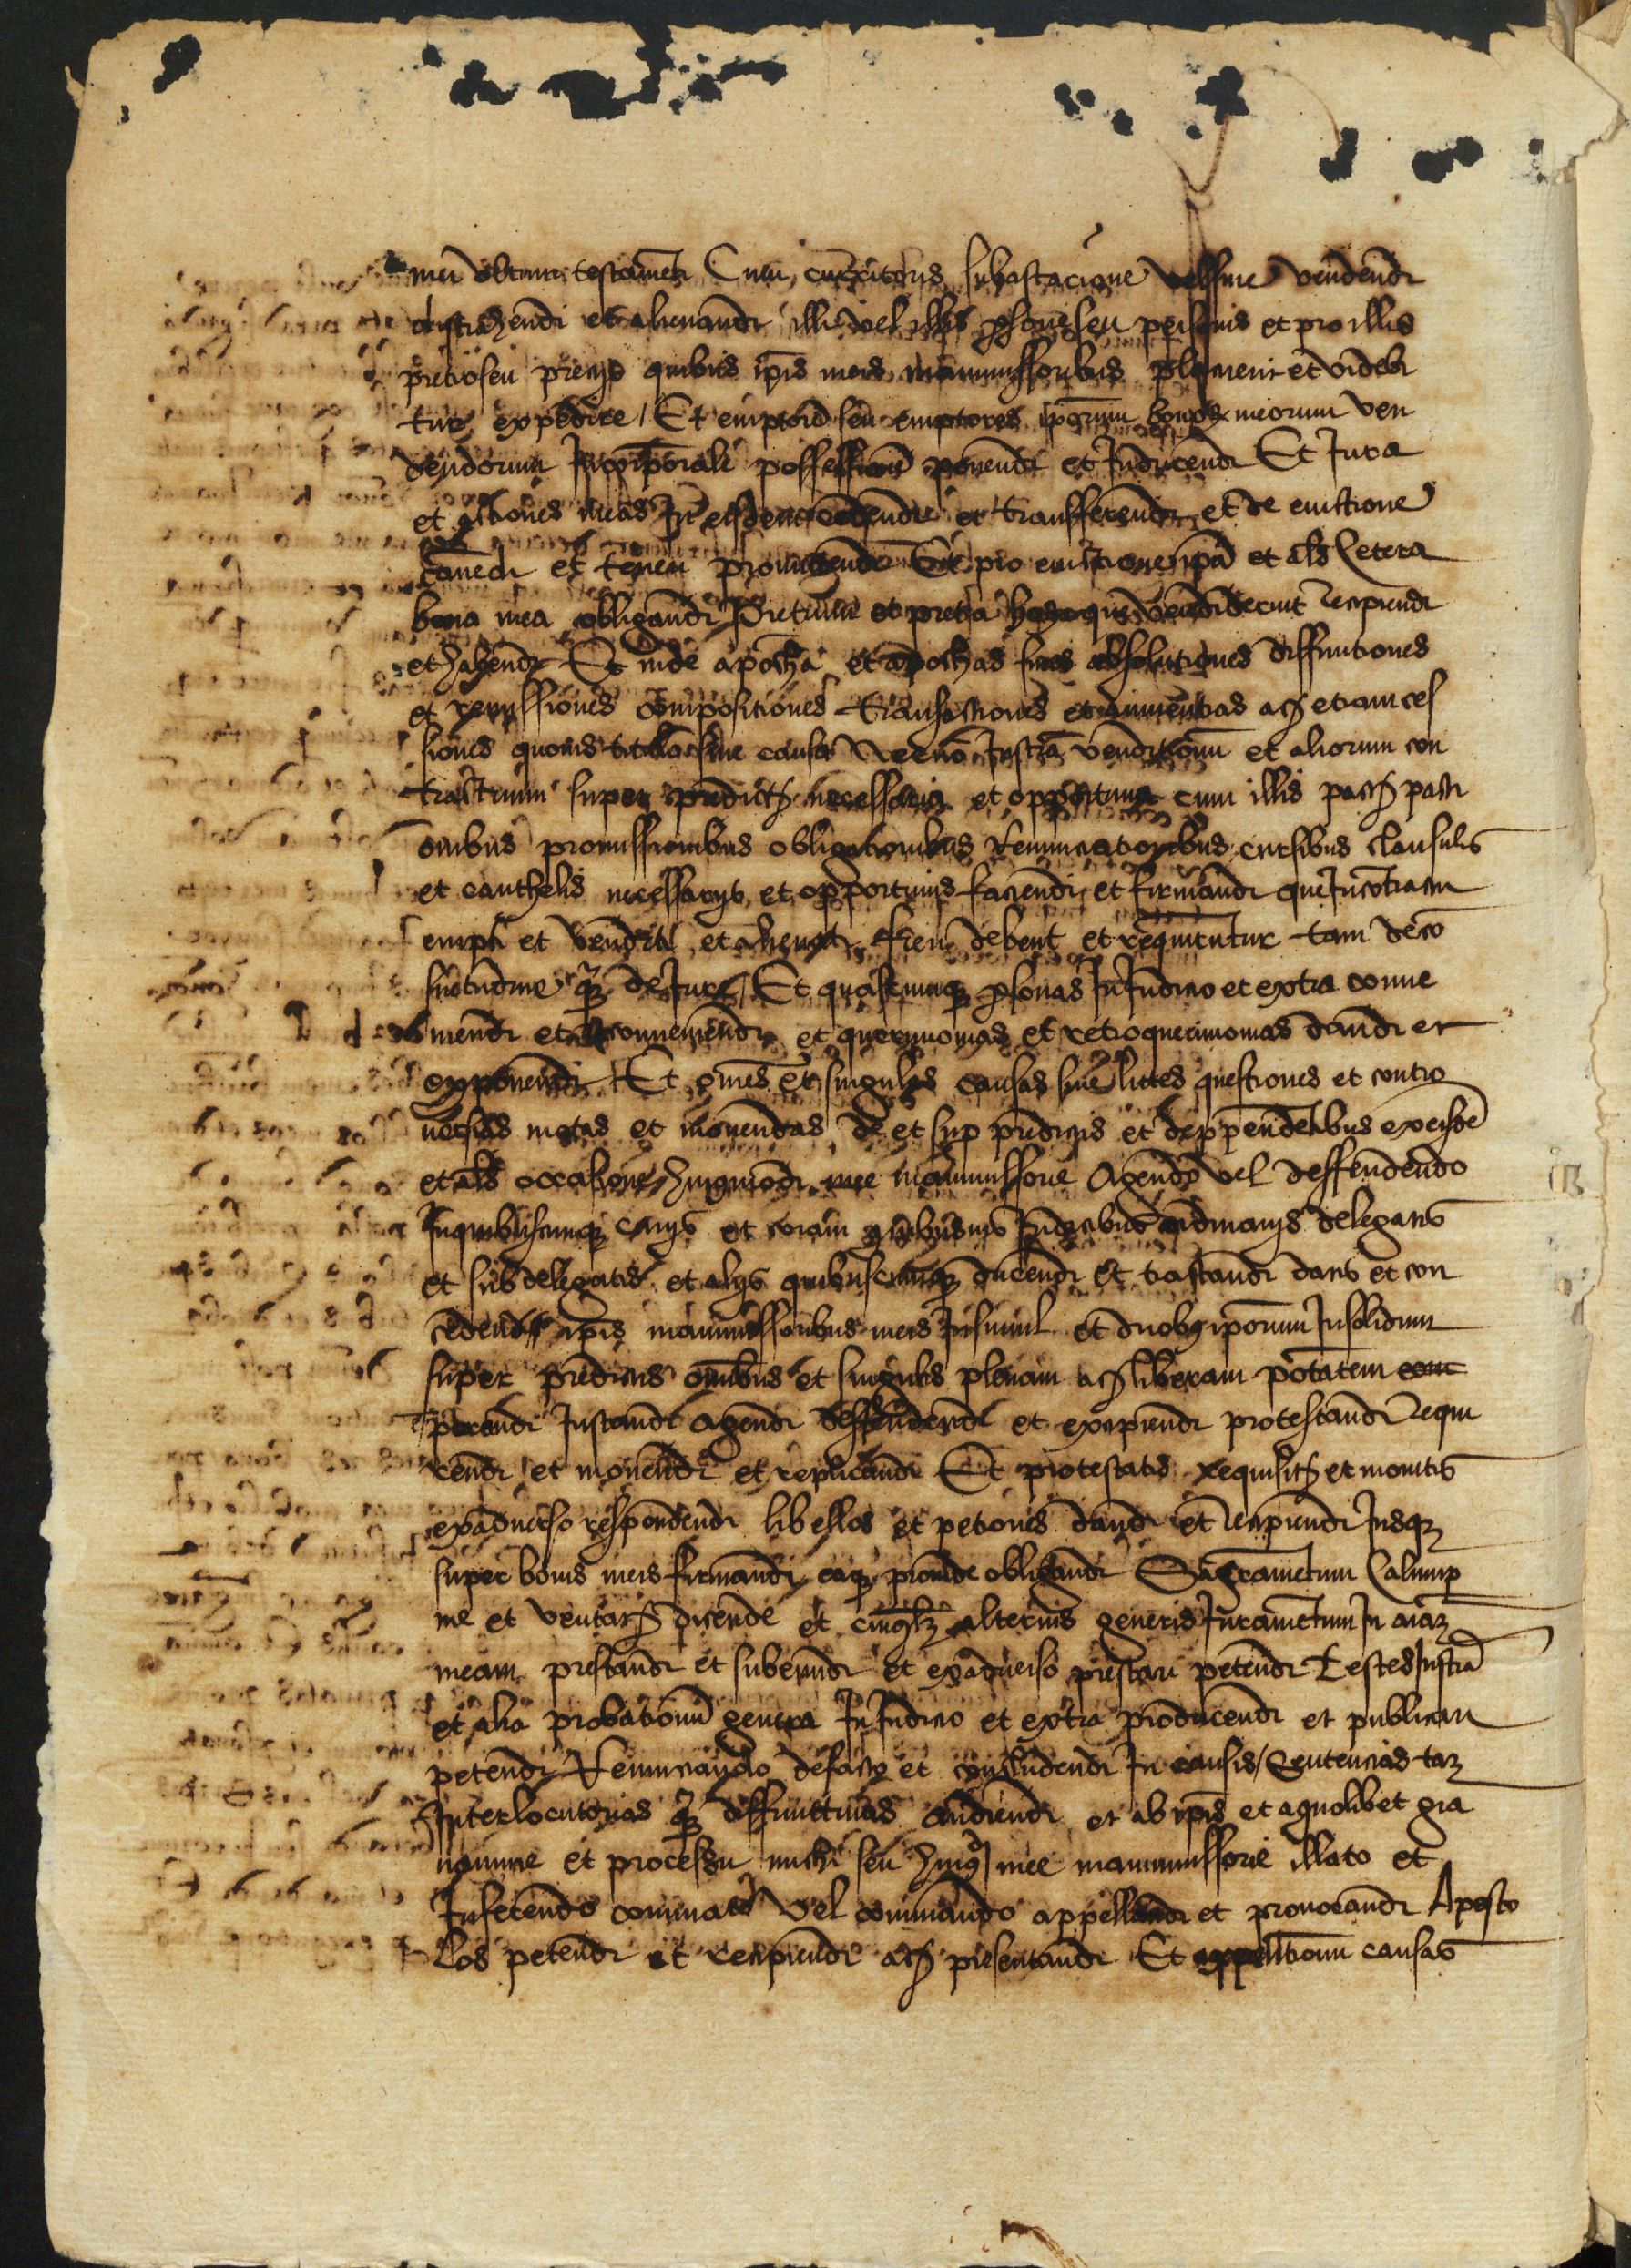 mei ultimi testamēti Cum curritoris subastacione vel sine vendendi
distrahendi et alienandi illi vel illis p̲sone seu personis et pro illis
precio seu precijs quibus ip̄is meis manumissoribus placuerit et videbi
tur expedire / Et emptorē seu emptores ip̄orum bonoꝝ meorum ven
dendorum In corporalē possessionē ponendi et Inducendi Et Jura
et actiones meas In eisdem cedendi et transfferendi et de euictione
cauendi et teneri promittendi Et pro euictione ip̄a et al̄s Cetera
bona mea obligandi Pretium et pretia eorum que vendiderint Recipiendi
et habendi Et inde apocħa et apocħas fines absolutiones diffinitiones
et remissiones compositiones transactiones et auinentias ac etiam ces
siones quouis titulo siue causa Necnō Instr̄a venditionū et aliorum con
tractuum super predictis necessaria et opportuna cum illis pactis pacti
onibus promissionibus obligationibus Renunciationibus cursibus clausulis
et cauthelis necessarijs et opportunis faciendi et firmandi que In contractu
empti et venditi et alienati fieri debent et requiruntur tam de cō
suetudine qꝫ de Jure / Et quascunqꝫ p̲sonas In Judicio et extra conue
niendi et reconueniendi et querimonias et retroquerimonias dandi et
exponendi Et om̄es et singulas causas siue lites questiones et contro
uersias motas et mouendas de et sup̲ predictis et deppendētibus ex eisdē
et al̄s occasione huiusmodi mee manumissorie Agendo vel deffendendo
In quibuscunqꝫ curijs et coram quibusuis Judicibus ordinarijs delegatis
et subdelegatis et alijs quibuscunqꝫ ducendi et tractandi dans et con
cedens ip̄is manumissoribus meis Insimul et duobꝫ ip̄orum Insolidum
super predictis omībus et singulis plenam ac liberam potātem com
parendi Instandi Agendi deffendendi et excipiendi protestandi Requi
rendi et monendi et replicandi Et protestatis requisitis et monitis
ex aduerso respondendi libellos et petiōnes dandi et Recipiendi Jusqꝫ
super bonis meis firmandi eaqꝫ proinde obligandi Sacramētum Calump
nie et veritatis dicende et cuiusl̄ꝫ alterius generis Juramētum In aīaꝫ
meam prestandi et subeundi et ex aduerso prestari petendi Testes Instr̄a
et alia probationū genera In Judicio et extra producendi et publicari
petendi Renunciando de facto et concludendi In causis / Sentencias taꝫ
Interlocutorias qꝫ diffinitiuas Audiendi et ab ip̄is et a quolibet gra
uamine et processu michi seu huiꝰ mee manumissorie illato et
Inferendo cominato vel cominando appellandi et prouocandi Aposto
los petendi et recipiendi ac presentandi Et appellationū causas